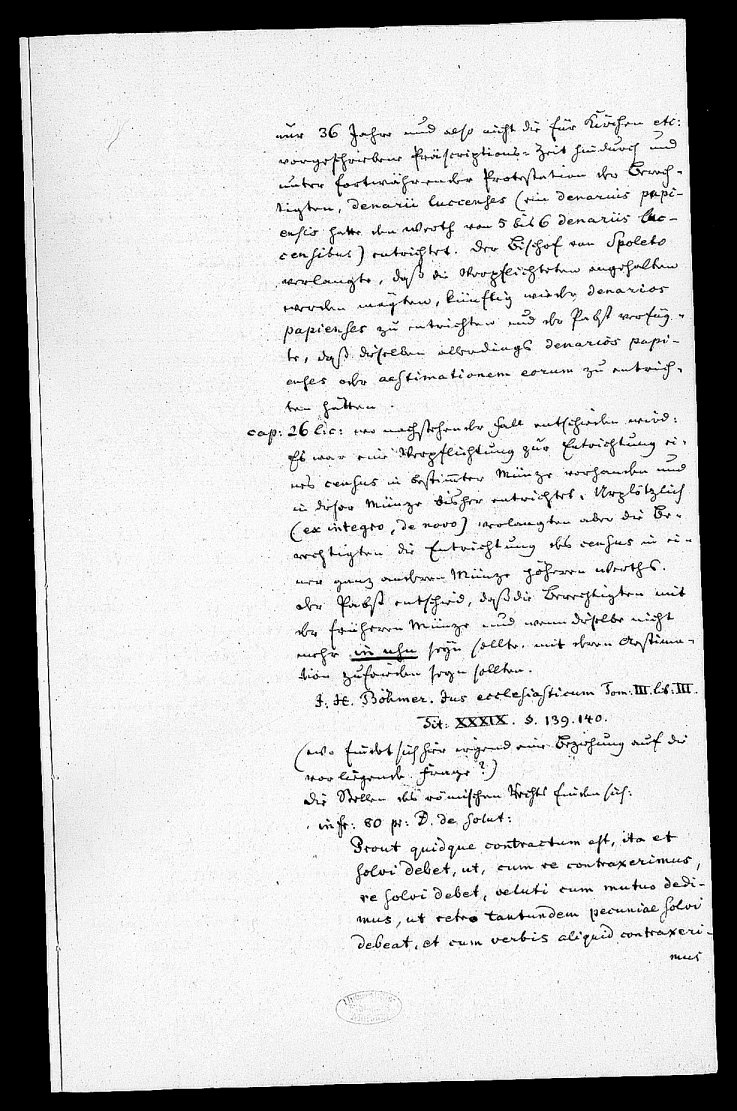 nur 36 Jahre und also nicht die für Kirchen etc:
vorgeschriebene Präscriptions-Zeit hindurch und
unter fortwährender Protestation der Berech-
tigten, denarii luccenses (ein denarius papi-
ensis hatte den Werth von 5 bis 6 denariis luc-
censibus) entrichtet. Der Bischof von Spoleto
verlangte, daß die Verpflichteten angehalten
werden mögten, künftig wieder denarios
papienses zu entrichten und der Pabst verfüg-
te, daß dieselben allerdings denarios papi-
enses oder aestimationem eorum zu entrich-
ten hätten.
cap: 26 l: c: wo nachstehender Fall entschieden wird:
Es war eine Verpflichtung zur Entrichtung ei-
nes census in bestimmter Münze vorhanden und
in dieser Münze bisher entrichtet. Urplötzlich
(ex integro, de novo) verlangten aber die Be-
rechtigten die Entrichtung des census in ei-
ner ganz anderen Münze höheren Werths.
Der Pabst entschied, daß die Berechtigten mit
der früheren Münze und wenn dieselbe nicht
mehr in usu seyn sollte, mit deren Aestima-
tion zufrieden seyn sollten.
I. H. Böhmer. Jus ecclesiasticum Tom: III. lib: III.
Tit: XXXIX. §. 139. 140.
(wo findet sich hier irgend eine Beziehung auf die
vorliegende Frage?)
Die Stellen des römischen Rechts finden sich:
in fr: 80 pr: D. de solut:
Prout quidque contractum est, ita et
solvi debet, ut, cum re contraxerimus,
re solvi debet, veluti cum mutuo dedi-
mus, ut retro tantundem pecuniae solvi
debeat, et cum verbis aliquid contraxeri-
mus